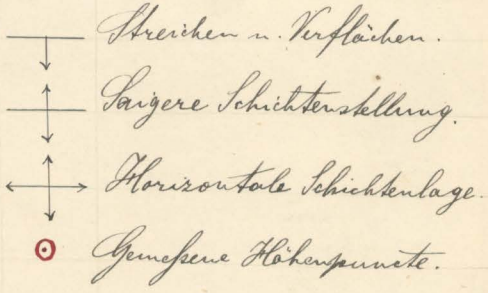 Streichen u. Verflächen.
Saigere Schichtenstellung.
Horizontale Schichtenlage.
Gemeßene Höhenpuncte.